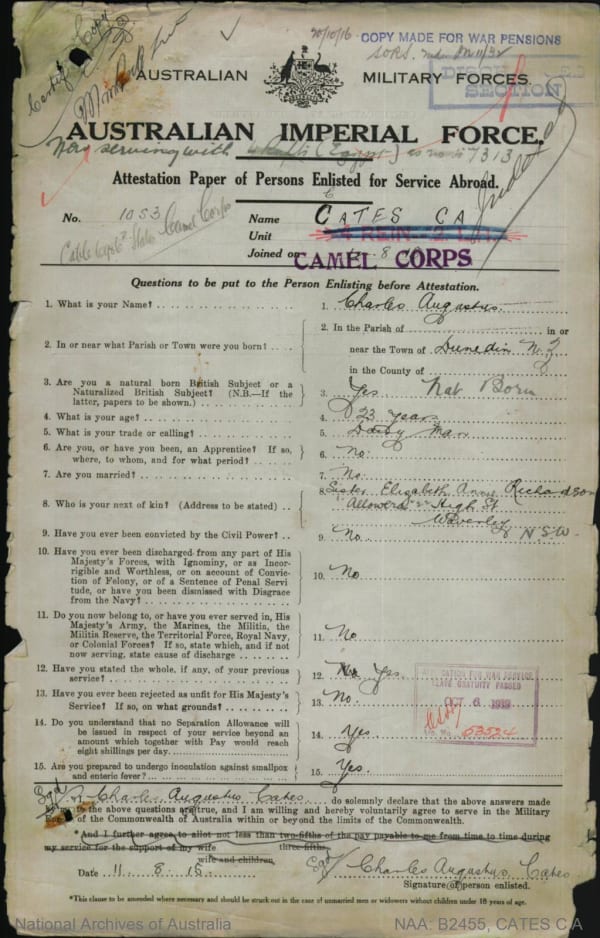 20/10/16
COPY MADE FOR WAR PENSIONS
AUSTRALIAN MILITARY FORCES.
AUSTRALIAN IMPERIAL FORCE.
Now serving with (Egypt) as no 7313
Attestation Paper of Persons Enlisted for Service Abroad.
No. 1053 Camel Corps Name CATES C A
Unit
Joined on
CAMEL CORPS
Questions to be put to the Person Enlisting before Attestation.
1. What is your Name? 1. Charles Augustus
2. In or near what Parish or Town were you born? 2. In the Parish of in or
near the Town of Dunedin N. Z
in the County of
3. Are you a natural born British Subject or a
Naturalized British Subject? (N.B.—If the
latter, papers to be shown.) 3. Yes Nat Born
4. What is your age? 4. 23 years
5. What is your trade or calling? 5. Dairy Man
6. Are you, or have you been, an Apprentice? If so,
where, to whom, and for what period? 6. No.
7. Are you married? 7. No.
8. Who is your next of kin? (Address to be stated) 8. Sister Elizabeth Annie Richardson
High St
Waverley N S W
9. Have you ever been convicted by the Civil Power? 9. No.
10. Have you ever been discharged from any part of His
Majesty's Forces, with Ignominy, or as Incor-
rigible and Worthless, or on account of Convic-
tion of Felony, or of a Sentence of Penal Servi-
tude, or have you been dismissed with Disgrace
from the Navy? 10. No
11. Do you now belong to, or have you ever served in, His
Majesty's Army, the Marines, the Militia, the
Militia Reserve, the Territorial Force, Royal Navy,
or Colonial Forces? If so, state which, and if not
now serving, state cause of discharge 11. No
12. Have you stated the whole, if any, of your previous
service? 12. Yes.
13. Have you ever been rejected as unfit for His Majesty's
Service? If so, on what grounds? 13. No.
OCT 6 1919
53524
14. Do you understand that no Separation Allowance will
be issued in respect of your service beyond an
amount which together with Pay would reach
eight shillings per day. 14. Yes
15. Are you prepared to undergo inoculation against smallpox
and enteric fever? 15. Yes.
I, Charles Augustus Cates do solemnly declare that the above answers made
to the above questions are true, and I am willing and hereby voluntarily agree to serve in the Military
of the Commonwealth of Australia within or beyond the limits of the Commonwealth.
*And I further agree to allot not less than two-fifths of the pay payable to me from time to time during
my service for the support of my wife three-fifths
wife and children,
Date 11 . 8 . 15 . Sgd/ Charles Augustus Cates
Signature of person enlisted.
*This clause to be amended where necessary and should be struck out in the case of unmarried men or widowers without children under 18 years of age.
National Archives of Australia NAA: B2455, CATES C A